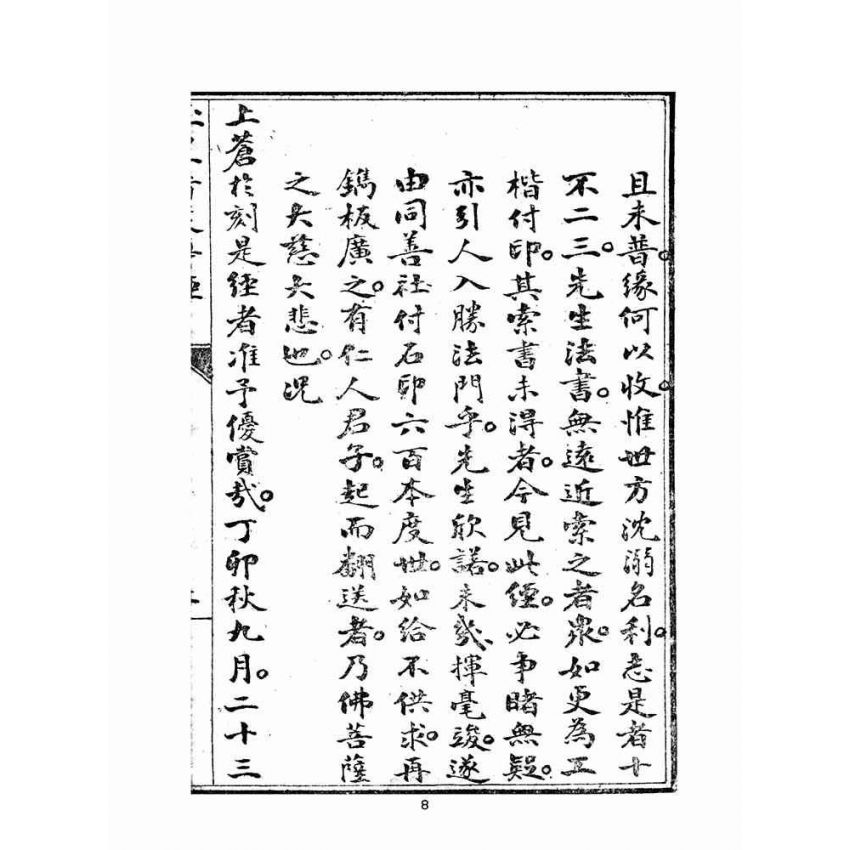 且未普。緣何以收。惟世方沈溺名利。忘是者十
不二三。先生法書。無遠近索之者衆。如更為正
楷付印。其索書未得者。今見此經。必爭睹無疑。
亦引人入勝法門乎。先生欣諾。未幾揮毫竣。遂
由同善社付石印六百本度世。如給不供求。再
鐫板廣之。有仁人君子。起而翻送者。乃佛菩薩
之大慈大悲也。況
上蒼於刻是經者准予優賞哉。丁卯秋九月。二十三
8